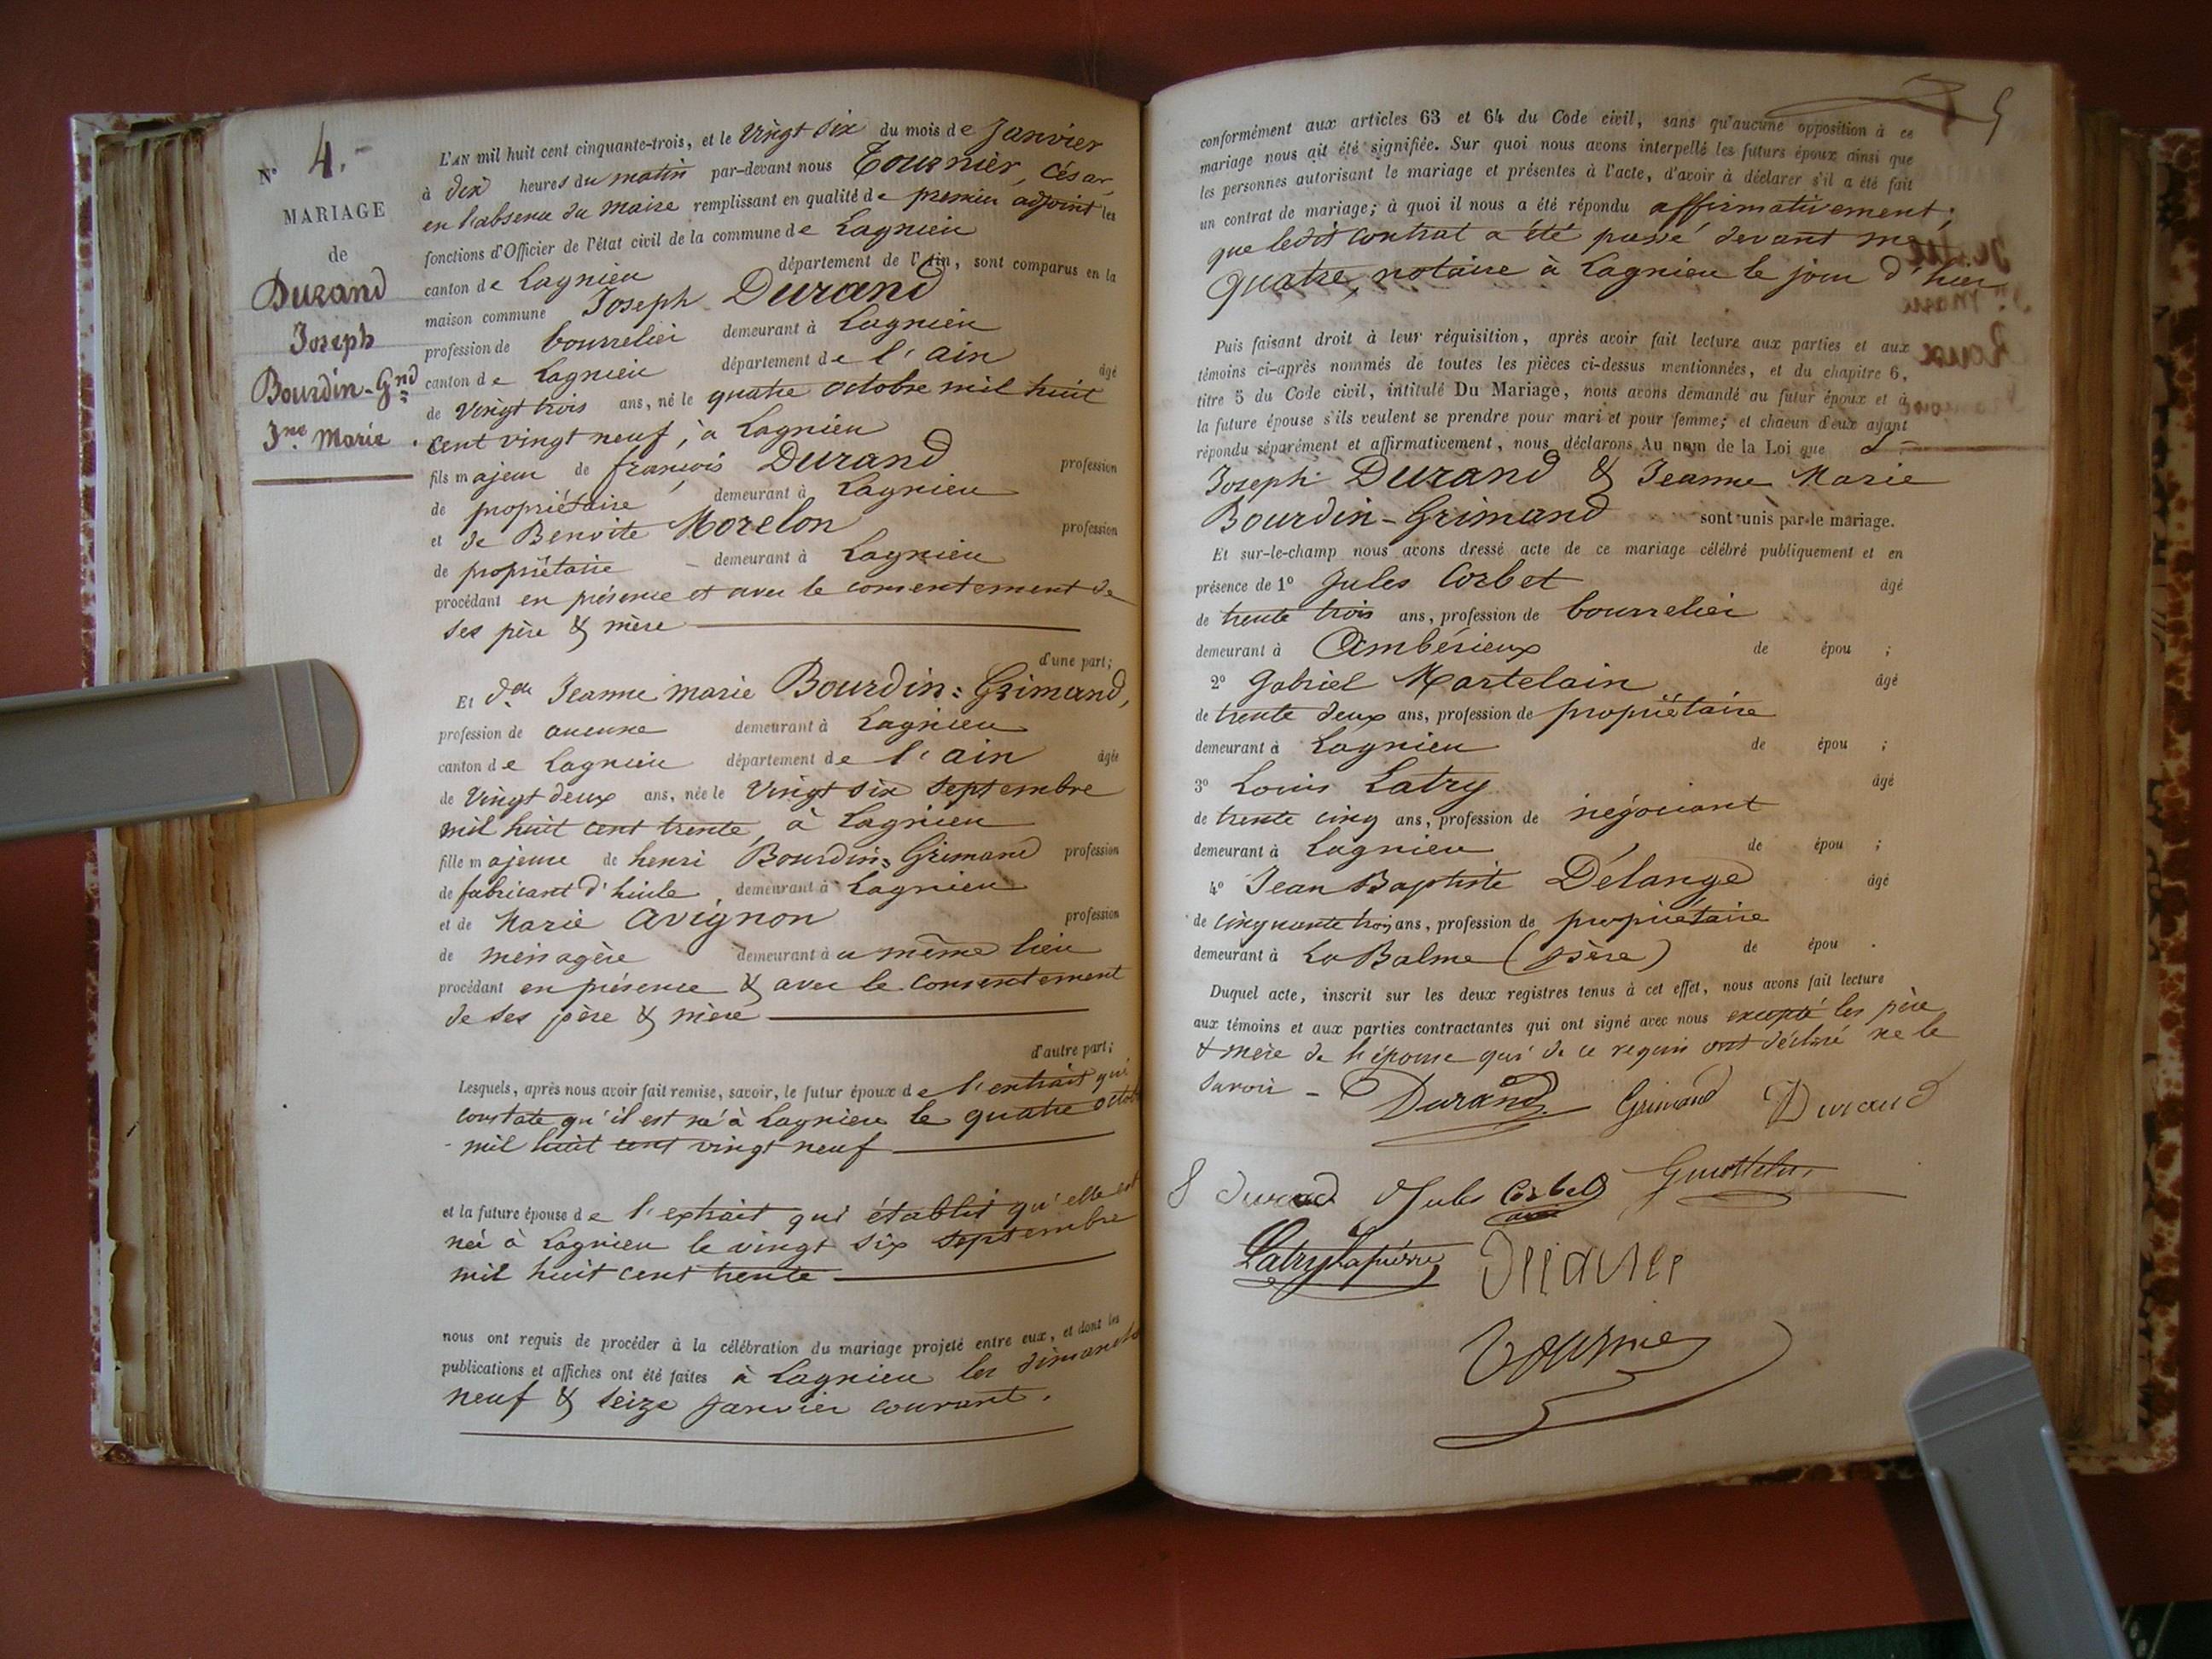 N° 4.
MARIAGE
de
Durand
Joseph
Bourdin-Gnd
Jne Marie
L'AN mil huit cent cinquante-trois, et le vingt six du mois de Janvier
à dix heures du matin par-devant nous Tournier, César,
en l'absence du Maire remplissant en qualité de premier adjoint les
fonctions d'Officier de l'état civil de la commune de Lagnieu
canton de Lagnieu département de l'Ain, sont comparus en la
maison commune Joseph Durand
profession de bourrelier demeurant à Lagnieu
canton de Lagnieu département de l'ain âgé
de vingt trois ans, né le quatre octobre mil huit
cent vingt neuf, à Lagnieu
fils majeur de françois Durand profession
de propriétaire, demeurant à Lagnieu
et de Benoite Morelon profession
de propriétaire demeurant à Lagnieu
procédant en présence et avec le consentement de
ses père & mère
d'une part;
Et dlle Jeanne marie Bourdin=Grimand,
profession de aucune demeurant à Lagnieu
canton de Lagnieu département de l'ain âgée
de vingt deux ans, née le vingt six septembre
mil huit cent trente, à Lagnieu
fille majeure de henri Bourdin=Grimand profession
de fabricant d'huile, demeurant à Lagnieu
et de Marie Avignon profession
de ménagère demeurant au même lieu
procédant en présence & avec le consentement
de ses père & mère
d'autre part;
Lesquels, après nous avoir fait remise, savoir, le futur époux de l'extrait qui
constate qu'il est né à Lagnieu le quatre octob
mil huit cent vingt neuf
et la future épouse de l'extrait qui établit qu'elle est
née à Lagnieu le vingt six septembre
mil huit cent trente
nous ont requis de procéder à la célébration du mariage projeté entre eux, et dont les
publications et affiches ont été faites à Lagnieu les dimanches
neuf & seize Janvier courant.
5
conformément aux articles 63 et 64 du Code civil, sans qu'aucune opposition à ce
mariage nous ait été signifiée. Sur quoi nous avons interpellé les futurs époux ainsi que
les personnes autorisant le mariage et présentes à l'acte, d'avoir à déclarer s'il a été fait
un contrat de mariage; à quoi il nous a été répondu affirmativement;
que ledit contrat a été passé devant me
Quatre, notaire à Lagnieu le jour d'hier
Puis faisant droit à leur réquisition, après avoir fait lecture aux parties et aux
témoins ci-après nommés de toutes les pièces ci-dessus mentionnées, et du chapitre 6,
titre 5 du Code civil, intitulé Du Mariage, nous avons demandé au futur époux et à
la future épouse s'ils veulent se prendre pour mari et pour femme; et chacun d'eux ayant
répondu séparément et affirmativement, nous déclarons Au nom de la Loi que
Joseph Durand & Jeanne Marie
Bourdin-Grimand sont unis par le mariage.
Et sur-le-champ nous avons dressé acte de ce mariage célébré publiquement et en
présence de 1° Jules Corbet âgé
de trente trois ans, profession de bourrelier
demeurant à Ambérieux de épou ;
2° Gabriel Martelain âgé
de trente deux ans, profession de propriétaire
demeurant à Lagnieu de épou ;
3° Louis Latry âgé
de trente cinq ans, profession de négociant
demeurant à Lagnieu de épou ;
4° Jean Baptiste Délange âgé
de cinquante trois ans, profession de propriétaire
demeurant à La Balme (Isère) de épou .
Duquel acte, inscrit sur les deux registres tenus à cet effet, nous avons fait lecture
aux témoins et aux parties contractantes qui ont signé avec nous excepté les père
& mère de l'épouse qui de ce requis ont déclaré ne le
savoir -
Durand Grimand Durand
Durand Jules Corbet
Latry Lapierre
Tournier